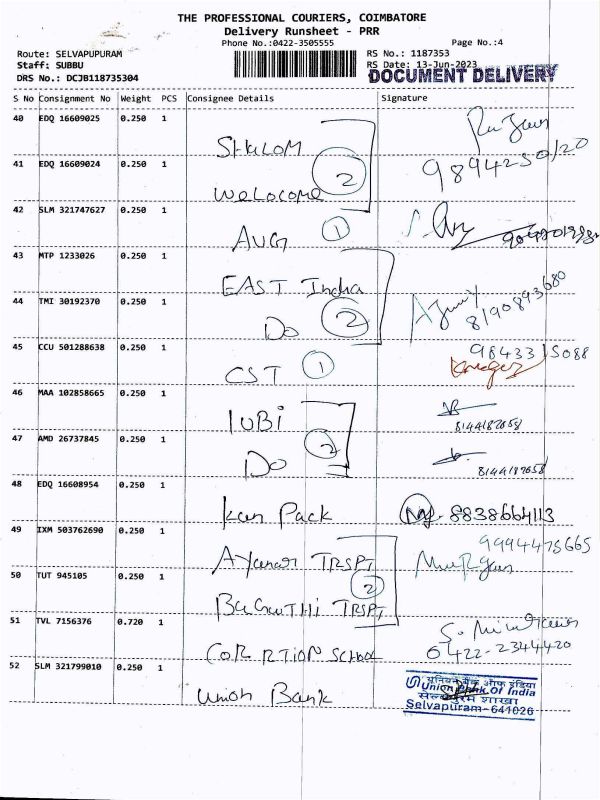 THE PROFESSIONAL COURIERS, COIMBATORE
Delivery Runsheet - PRR
Phone No.:0422-3505555
Page No.:4
Route: SELVAPUPURAM
RS No.: 1187353
Staff: SUBBU
RS Date: 13-Jun-2023
DRS No.: DCJB118735304
DOCUMENT DELIVERY
S No Consignment No Weight PCS Consignee Details Signature
40 EDQ 16609025 0.250 1 SHALOM
41 EDQ 16609024 0.250 1 WELOCOME 2
42 SLM 321747627 0.250 1 AUG 1
43 MTP 1233026 0.250 1 EAST India
44 TMI 30192370 0.250 1 Do 2 8190893680
45 CCU 501288638 0.250 1 CST 1 98433 15088
46 MAA 102858665 0.250 1 IUBI 8144187658
47 AMD 26737845 0.250 1 Do 2 8144187658
48 EDQ 16608954 0.250 1 Kan Pack 8838664113
49 IXM 503762690 0.250 1 Ayanar TRSPT 9994475665
50 TUT 945105 0.250 1 TRSPT 2
51 TVL 7156376 0.720 1 CORRTION SCHOOL 0422-2344420
52 SLM 321799010 0.250 1 Union Bank
यूनियन बैंक ऑफ इंडिया
Union Bank Of India
शाखा
Selvapuram-641026